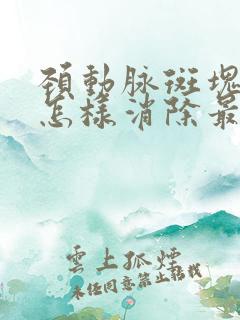 頸動脉斑塊
怎樣消除最
雲上孤煙
未经同意禁止搭载